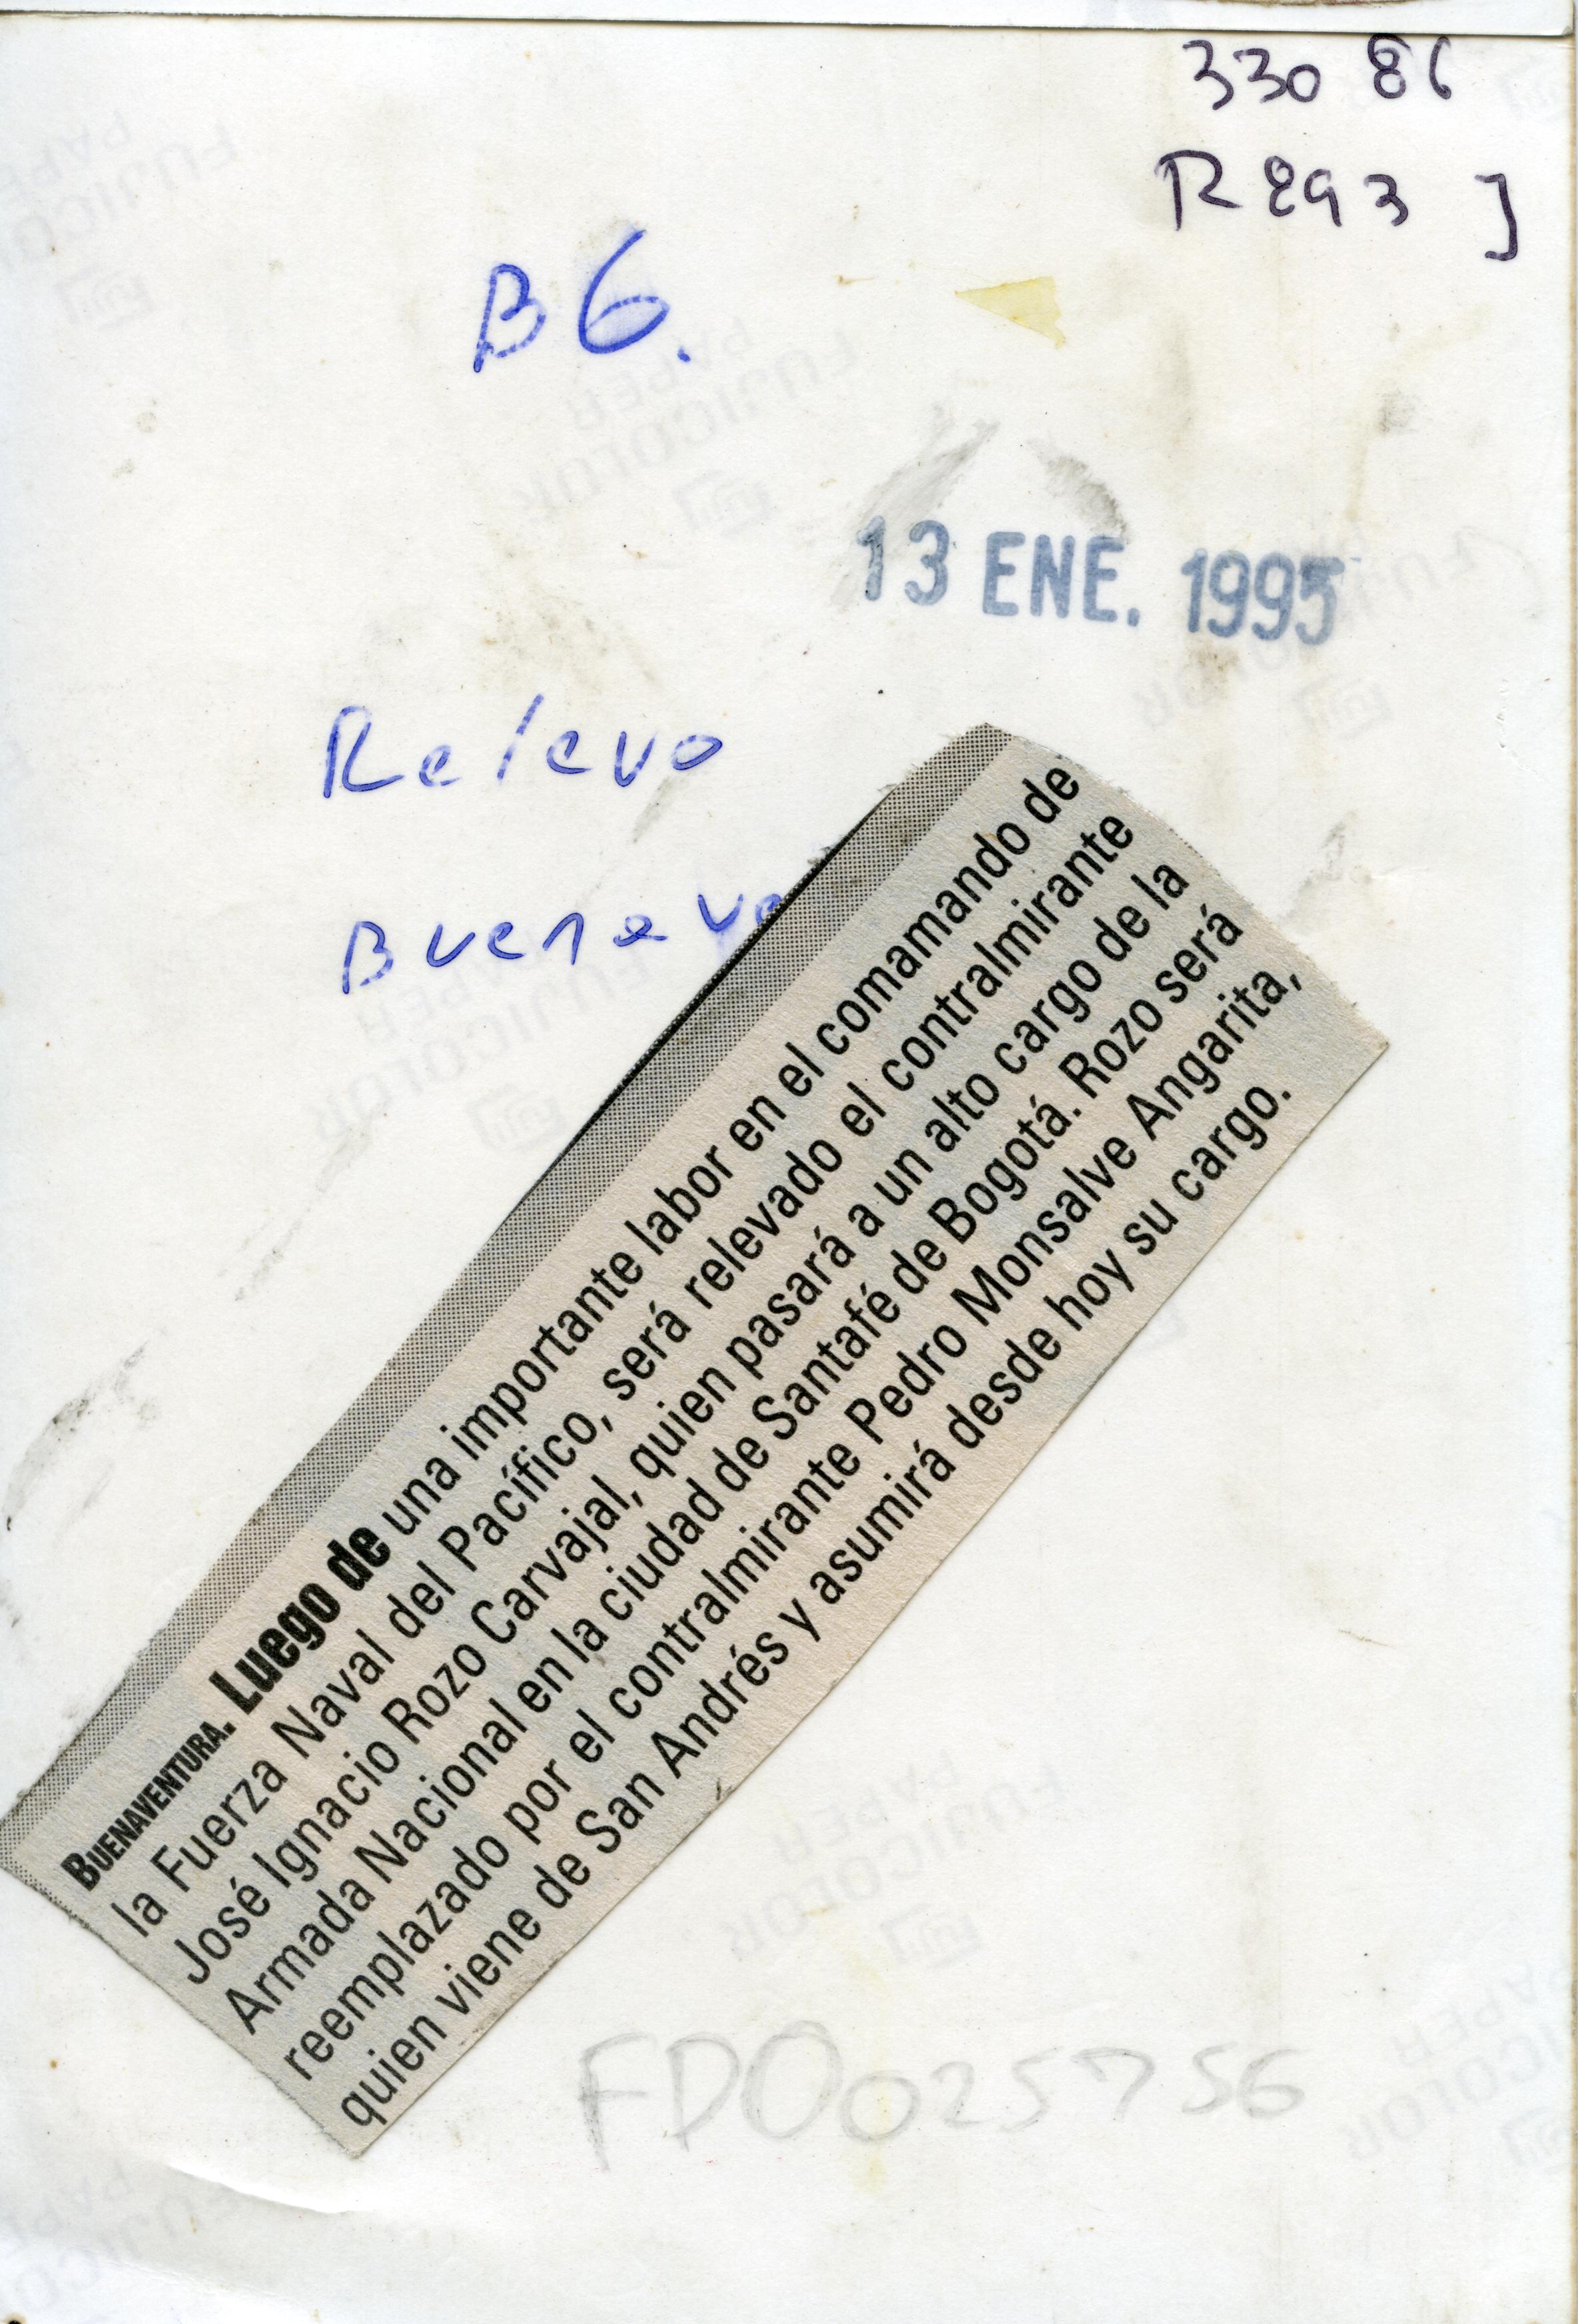 330 86
R893 J
B6.
13 ENE. 1995
Relevo
Buenave
BUENAVENTURA. Luego de una importante labor en el comamando de
la Fuerza Naval del Pacífico, será relevado el contralmirante
José Ignacio Rozo Carvajal, quien pasará a un alto cargo de la
Armada Nacional en la ciudad de Santafé de Bogotá. Rozo será
reemplazado por el contralmirante Pedro Monsalve Angarita,
quien viene de San Andrés y asumirá desde hoy su cargo.
FDO025756
FUJICOLOR
PAPER